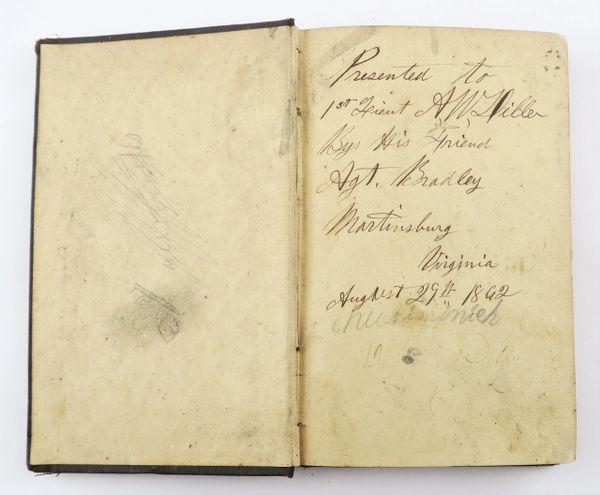 Presented to
1st Lieut A W Diller
By His Friend
Agt. Bradley
Martinsburg
Virginia
Aughest 29th 1862